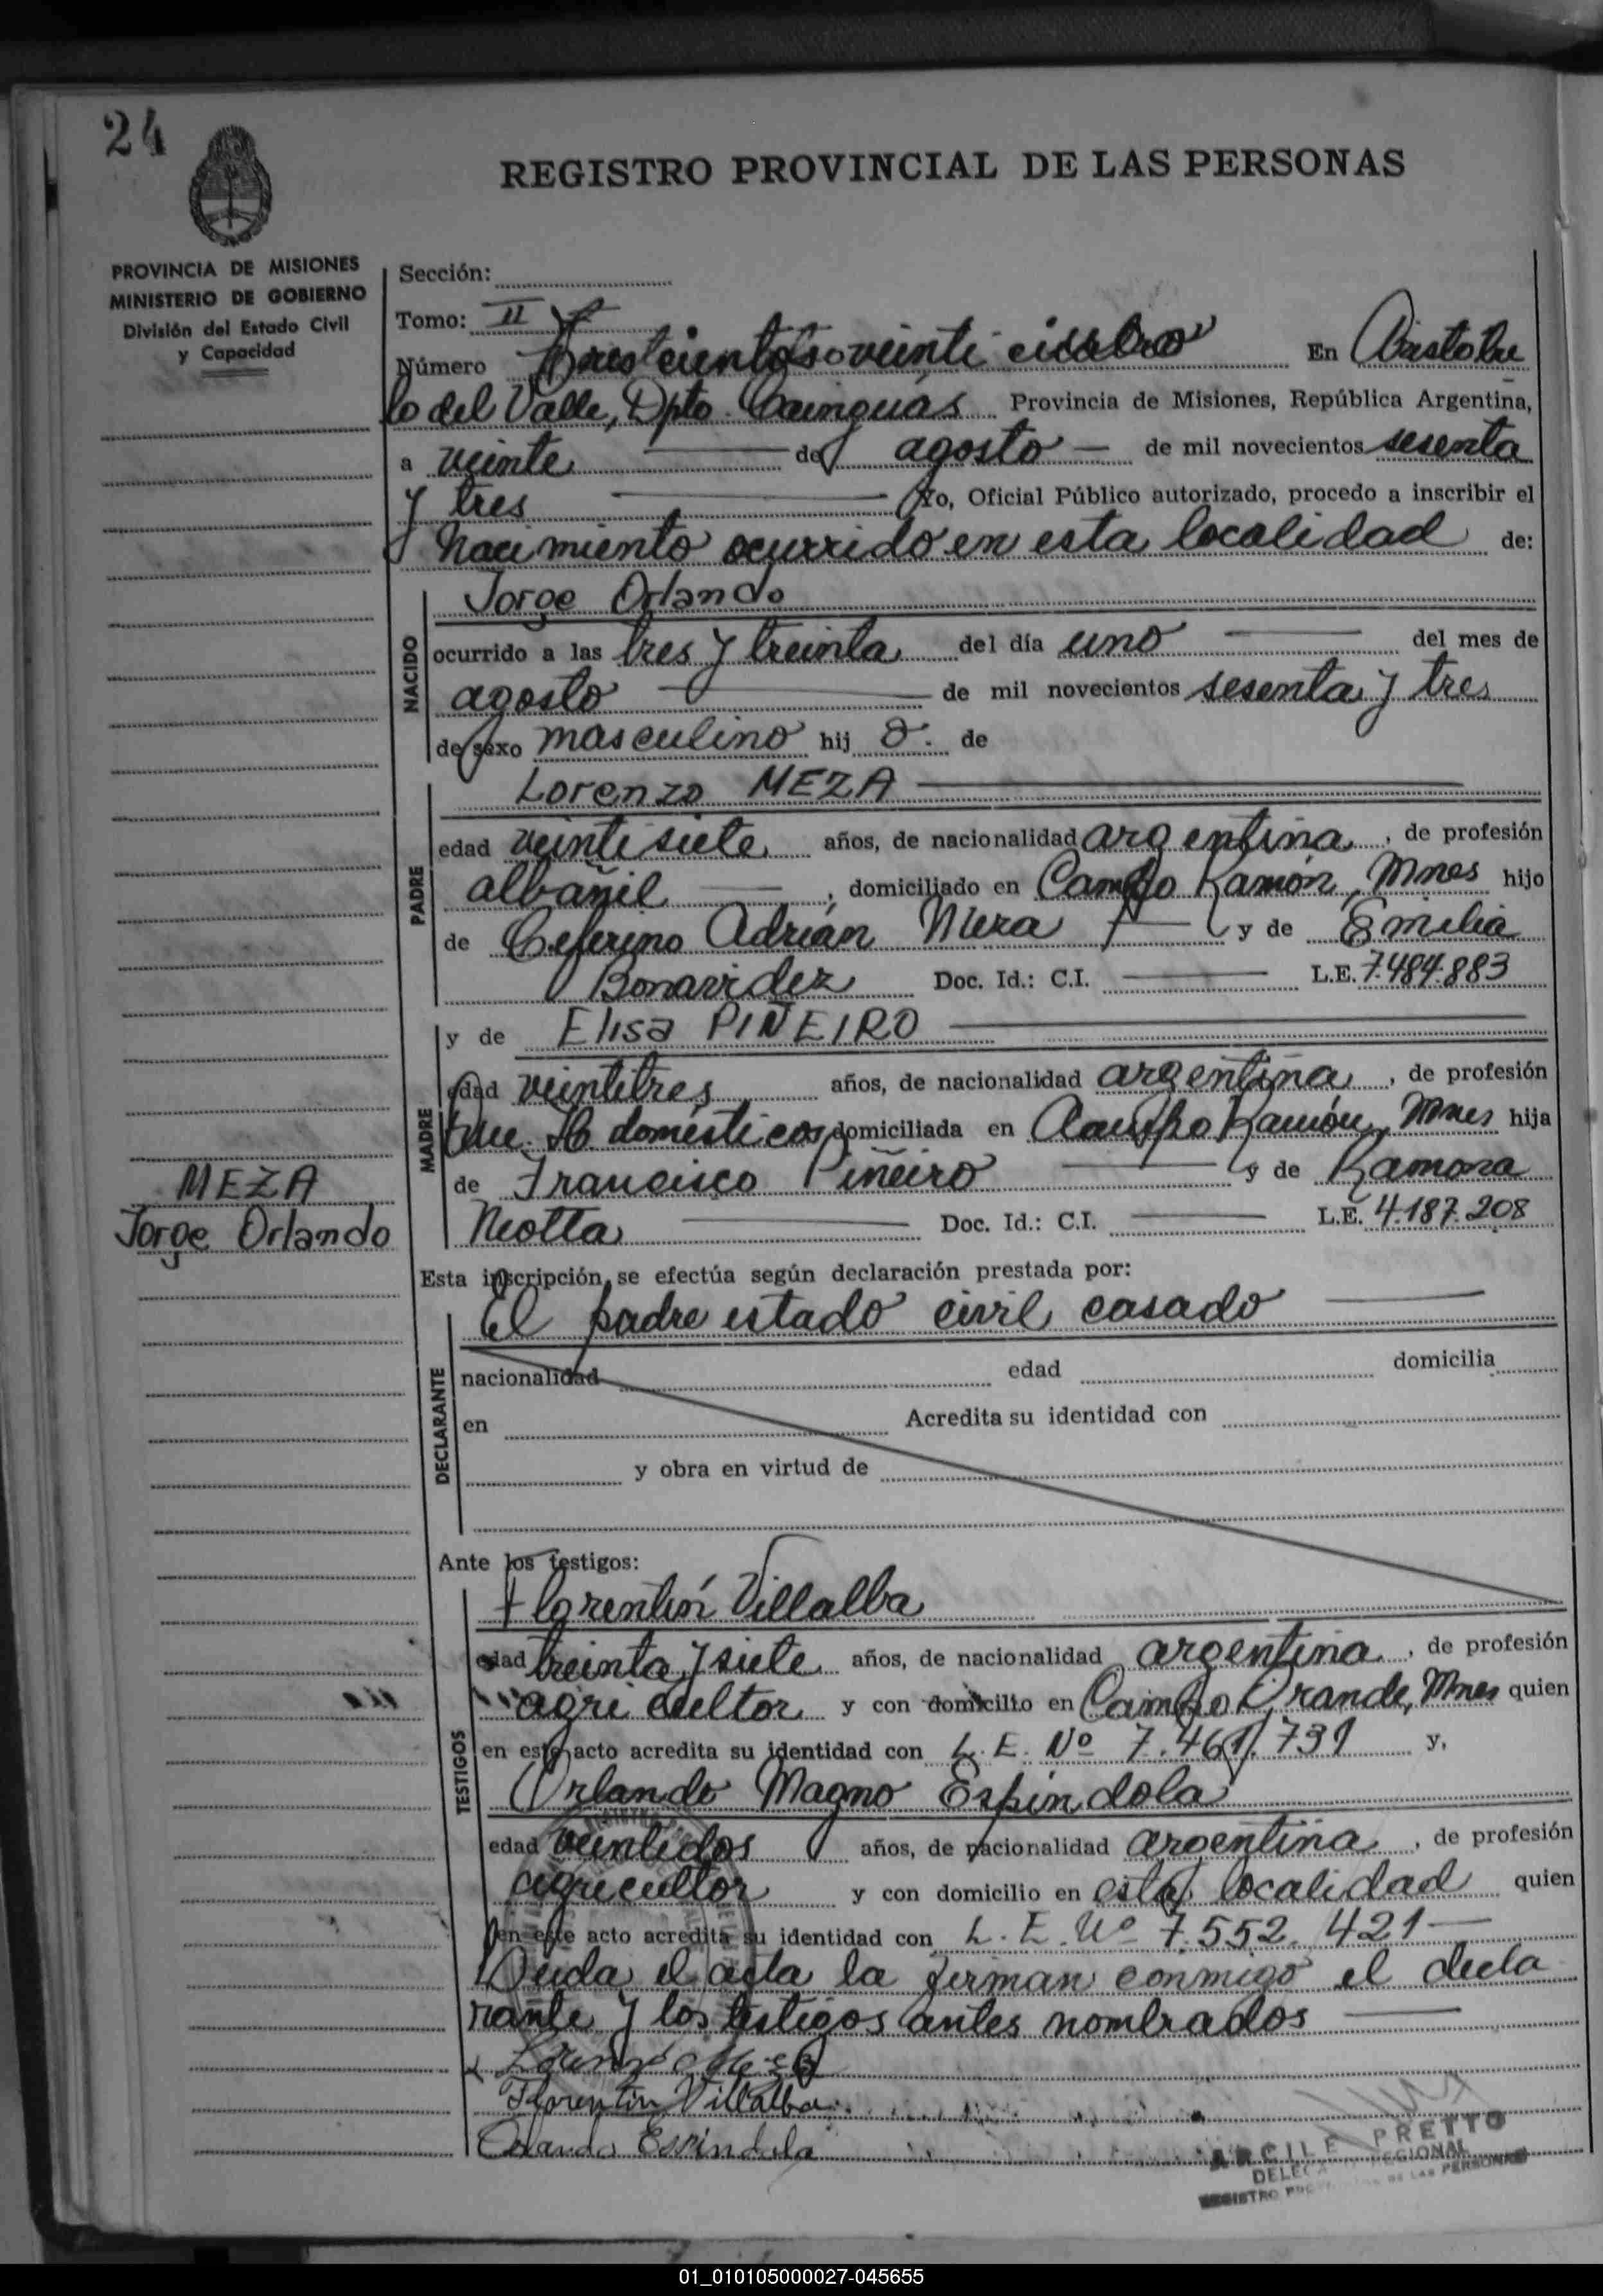 24
REGISTRO PROVINCIAL DE LAS PERSONAS
PROVINCIA DE MISIONES
MINISTERIO DE GOBIERNO
División del Estado Civil
y Capacidad
Sección:
Tomo: II
Número Trescientos veinti cuatro En Aristobu
lo del Valle, Dpto. Cainguás Provincia de Misiones, República Argentina,
a veinte de agosto de mil novecientos sesenta
y tres Yo, Oficial Público autorizado, procedo a inscribir el
Nacimiento ocurrido en esta localidad de:
NACIDO
Jorge Orlando
ocurrido a las tres y treinta del día uno del mes de
agosto de mil novecientos sesenta y tres
de sexo masculino hij o. de
PADRE
Lorenzo MEZA
edad veintisiete años, de nacionalidad argentina, de profesión
albañil, domiciliado en Campo Ramón, Mnes hijo
de Ceferino Adrián Meza y de Emilia
Bonavidez Doc. Id.: C.I. L.E. 7.484.883
MADRE
y de Elisa PIÑEIRO
edad veintitres años, de nacionalidad argentina, de profesión
domésticos, domiciliada en Campo Ramón, Mnes hija
de Francisco Piñeiro y de Ramona
Neotta Doc. Id.: C.I. L.E. 4.187.208
MEZA
Jorge Orlando
Esta inscripción se efectúa según declaración prestada por:
DECLARANTE
El padre estado civil casado
nacionalidad edad domicilia
en Acredita su identidad con
y obra en virtud de
Ante los testigos:
TESTIGOS
Florentín Villalba
edad treinta y siete años, de nacionalidad argentina, de profesión
agricultor y con domicilio en Campo Grande, Mnes quien
en este acto acredita su identidad con L. E. Nº 7.461.731 y,
Orlando Magno Espíndola
edad veintidos años, de nacionalidad argentina, de profesión
agricultor y con domicilio en esta localidad quien
en este acto acredita su identidad con L. E. Nº 7.552.421
Leida el acta la firman conmigo el decla
rante y los testigos antes nombrados
Lorenzo Meza
Florentín Villalba
Orlando Espindola
ARCILE PRETTO
REGIONAL
REGISTRO DE LAS PERSONAS
01_010105000027-045655